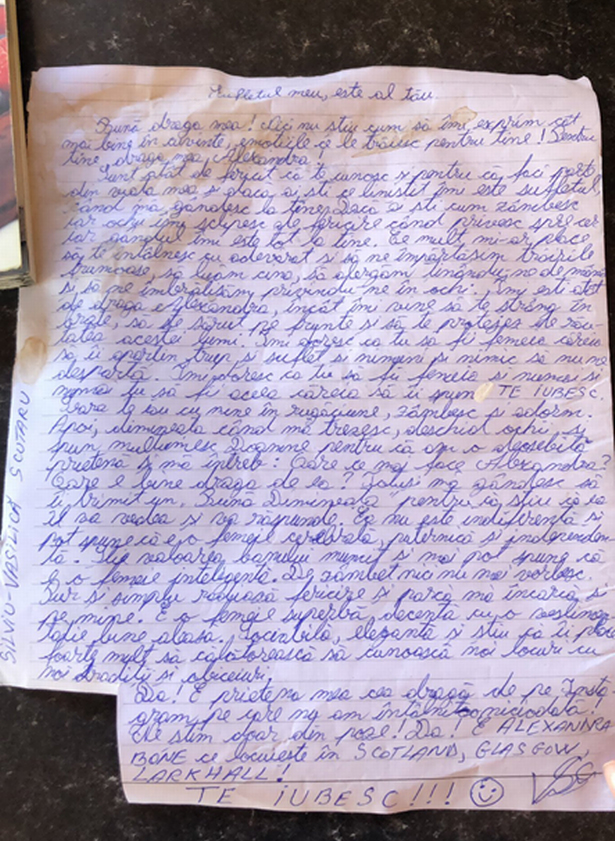 Sufletul meu, este al tău
Bună draga mea! Nici nu stiu cum să îmi exprim cât
mai bine în cuvinte, emotiile ce le trăiesc pentru tine! Pentru
tine draga mea, Alexandra!
Sunt atât de fericit că te cunosc si pentru că faci parte
din viata mea si dacă ai sti ce linistit îmi este sufletul
când mă gândesc la tine. Dacă ai sti cum zâmbesc
iar ochii îmi sclipesc de fericire când privesc spre cer
iar gândul îmi este tot la tine. Ce mult mi-ar place
să te întâlnesc cu adevărat si să ne împărtăsim trăirile
frumoase, să luăm cina, să alergăm tinându-ne de mână
si să ne îmbrătisăm privindu-ne în ochi. Îmi esti atât
de dragă Alexandra, încât îmi vine să te strâng în
brate, să te sărut pe frunte si să te protejez de rău-
tatea acestei lumi. Îmi doresc ca tu să fii femeia căreia
să îi apartin trup si suflet si nimeni si nimic să nu ne
despartă. Îmi doresc ca tu să fii femeia si numai si
numai tu să fii aceea căreia să îi spun TE IUBESC.
Seara te iau cu mine în rugăciune, zâmbesc si adorm.
Apoi, dimineata când mă trezesc, deschid ochii si
spun multumesc Doamne pentru că am o deosebită
prietenă si mă întreb: Oare ce mai face Alexandra?
Oare e bine draga de ea? Totusi mă gândesc să
îi trimit un "Bună Dimineata" pentru că stiu că ea
îl va vedea si va răspunde. Ea nu este indiferentă si
pot spune că e o femeie cerebrală, puternică si independen-
tă. Stie valoarea banului muncit si mai pot spune că
e o femeie inteligentă. De zâmbet nici nu mai vorbesc.
Pur si simplu radiază fericire si parcă mă încarcă si
pe mine. E o femeie superbă decentă cu o vestimen-
tatie bine aleasă. Sociabilă, elegantă si stiu că îi place
foarte mult să călătorească să cunoască noi locuri cu
noi traditii si obiceiuri.
Da! E prietena mea cea dragă de pe Insta-
gram pe care nu am întâlnit-o niciodată!
Ne stim doar din poze! Da! E ALEXANDRA
BONE ce locuieste în SCOTLAND, GLASGOW,
LARKHALL!
TE IUBESC!!!
SILVIU-VASILICĂ SCUTARU